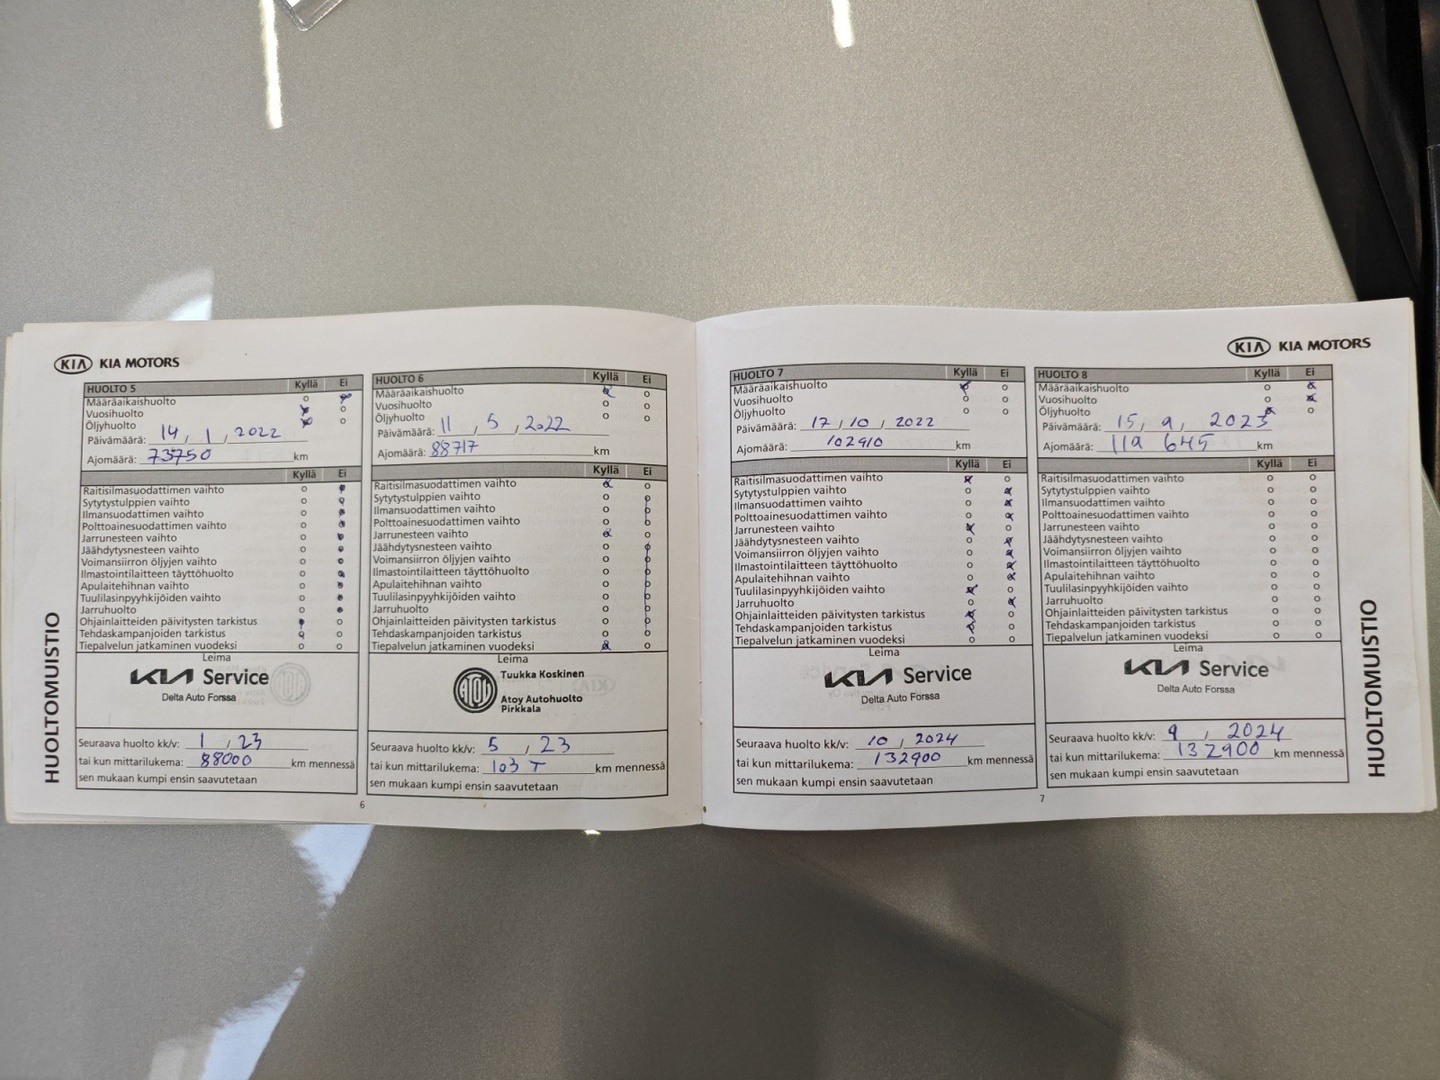 KIA KIA MOTORS
HUOLTOMUISTIO
HUOLTO 5 Kyllä Ei
Määräaikaishuolto
Vuosihuolto
Öljyhuolto
Päivämäärä: 14 , 1 , 2022
Ajomäärä: 73750 km
Kyllä Ei
Raitisilmasuodattimen vaihto
Sytytystulppien vaihto
Ilmansuodattimen vaihto
Polttoainesuodattimen vaihto
Jarrunesteen vaihto
Jäähdytysnesteen vaihto
Voimansiirron öljyjen vaihto
Ilmastointilaitteen täyttöhuolto
Apulaitehihnan vaihto
Tuulilasinpyyhkijöiden vaihto
Jarruhuolto
Ohjainlaitteiden päivitysten tarkistus
Tehdaskampanjoiden tarkistus
Tiepalvelun jatkaminen vuodeksi
Leima
KIA Service
Delta Auto Forssa
Seuraava huolto kk/v: 1 , 23
tai kun mittarilukema: 88000 km mennessä
sen mukaan kumpi ensin saavutetaan
HUOLTO 6 Kyllä Ei
Määräaikaishuolto
Vuosihuolto
Öljyhuolto
Päivämäärä: 11 , 5 , 2022
Ajomäärä: 88717 km
Kyllä Ei
Raitisilmasuodattimen vaihto
Sytytystulppien vaihto
Ilmansuodattimen vaihto
Polttoainesuodattimen vaihto
Jarrunesteen vaihto
Jäähdytysnesteen vaihto
Voimansiirron öljyjen vaihto
Ilmastointilaitteen täyttöhuolto
Apulaitehihnan vaihto
Tuulilasinpyyhkijöiden vaihto
Jarruhuolto
Ohjainlaitteiden päivitysten tarkistus
Tehdaskampanjoiden tarkistus
Tiepalvelun jatkaminen vuodeksi
Leima
ATOY
Tuukka Koskinen
Atoy Autohuolto
Pirkkala
Seuraava huolto kk/v: 5 , 23
tai kun mittarilukema: 103 T km mennessä
sen mukaan kumpi ensin saavutetaan
6
HUOLTO 7 Kyllä Ei
Määräaikaishuolto
Vuosihuolto
Öljyhuolto
Päivämäärä: 17 , 10 , 2022
Ajomäärä: 102910 km
Kyllä Ei
Raitisilmasuodattimen vaihto
Sytytystulppien vaihto
Ilmansuodattimen vaihto
Polttoainesuodattimen vaihto
Jarrunesteen vaihto
Jäähdytysnesteen vaihto
Voimansiirron öljyjen vaihto
Ilmastointilaitteen täyttöhuolto
Apulaitehihnan vaihto
Tuulilasinpyyhkijöiden vaihto
Jarruhuolto
Ohjainlaitteiden päivitysten tarkistus
Tehdaskampanjoiden tarkistus
Tiepalvelun jatkaminen vuodeksi
Leima
KIA Service
Delta Auto Forssa
Seuraava huolto kk/v: 10 , 2024
tai kun mittarilukema: 132900 km mennessä
sen mukaan kumpi ensin saavutetaan
KIA KIA MOTORS
HUOLTO 8 Kyllä Ei
Määräaikaishuolto
Vuosihuolto
Öljyhuolto
Päivämäärä: 15, 9, 2023
Ajomäärä: 119 645 km
Kyllä Ei
Raitisilmasuodattimen vaihto
Sytytystulppien vaihto
Ilmansuodattimen vaihto
Polttoainesuodattimen vaihto
Jarrunesteen vaihto
Jäähdytysnesteen vaihto
Voimansiirron öljyjen vaihto
Ilmastointilaitteen täyttöhuolto
Apulaitehihnan vaihto
Tuulilasinpyyhkijöiden vaihto
Jarruhuolto
Ohjainlaitteiden päivitysten tarkistus
Tehdaskampanjoiden tarkistus
Tiepalvelun jatkaminen vuodeksi
Leima
KIA Service
Delta Auto Forssa
Seuraava huolto kk/v: 9 , 2024
tai kun mittarilukema: 132900 km mennessä
sen mukaan kumpi ensin saavutetaan
7
HUOLTOMUISTIO